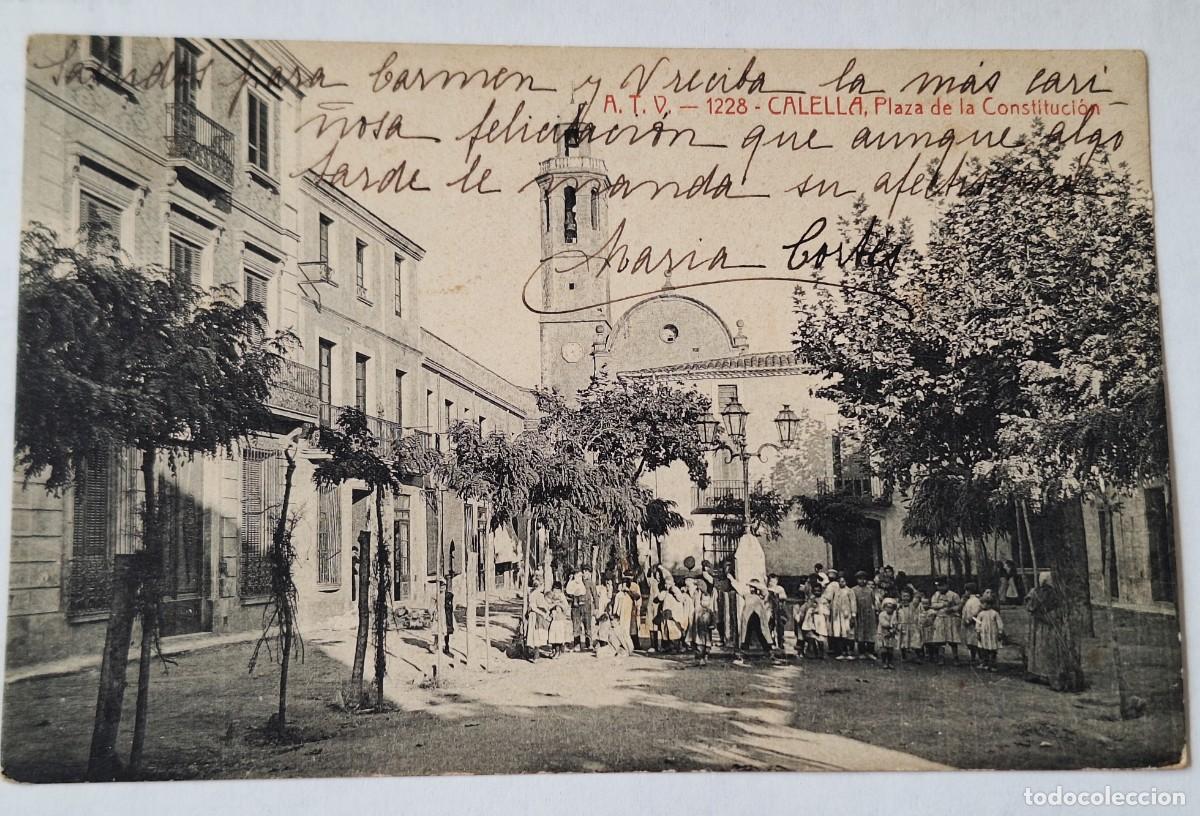 Saludos para Carmen y V reciba la más cari-
A. T. V. — 1228 - CALELLA, Plaza de la Constitución
ñosa felicitación que aunque algo
tarde le manda su afectísima
Maria Cortés
todocoleccion